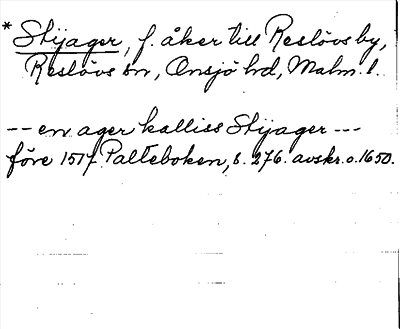 * Stijager, f. åker till Reslövs by,
Reslövs sn, Onsjö hd, Malm. l.
-- en ager kalliss Stijager ---
före 1517. Palteboken, s. 276. avskr. o. 1650.